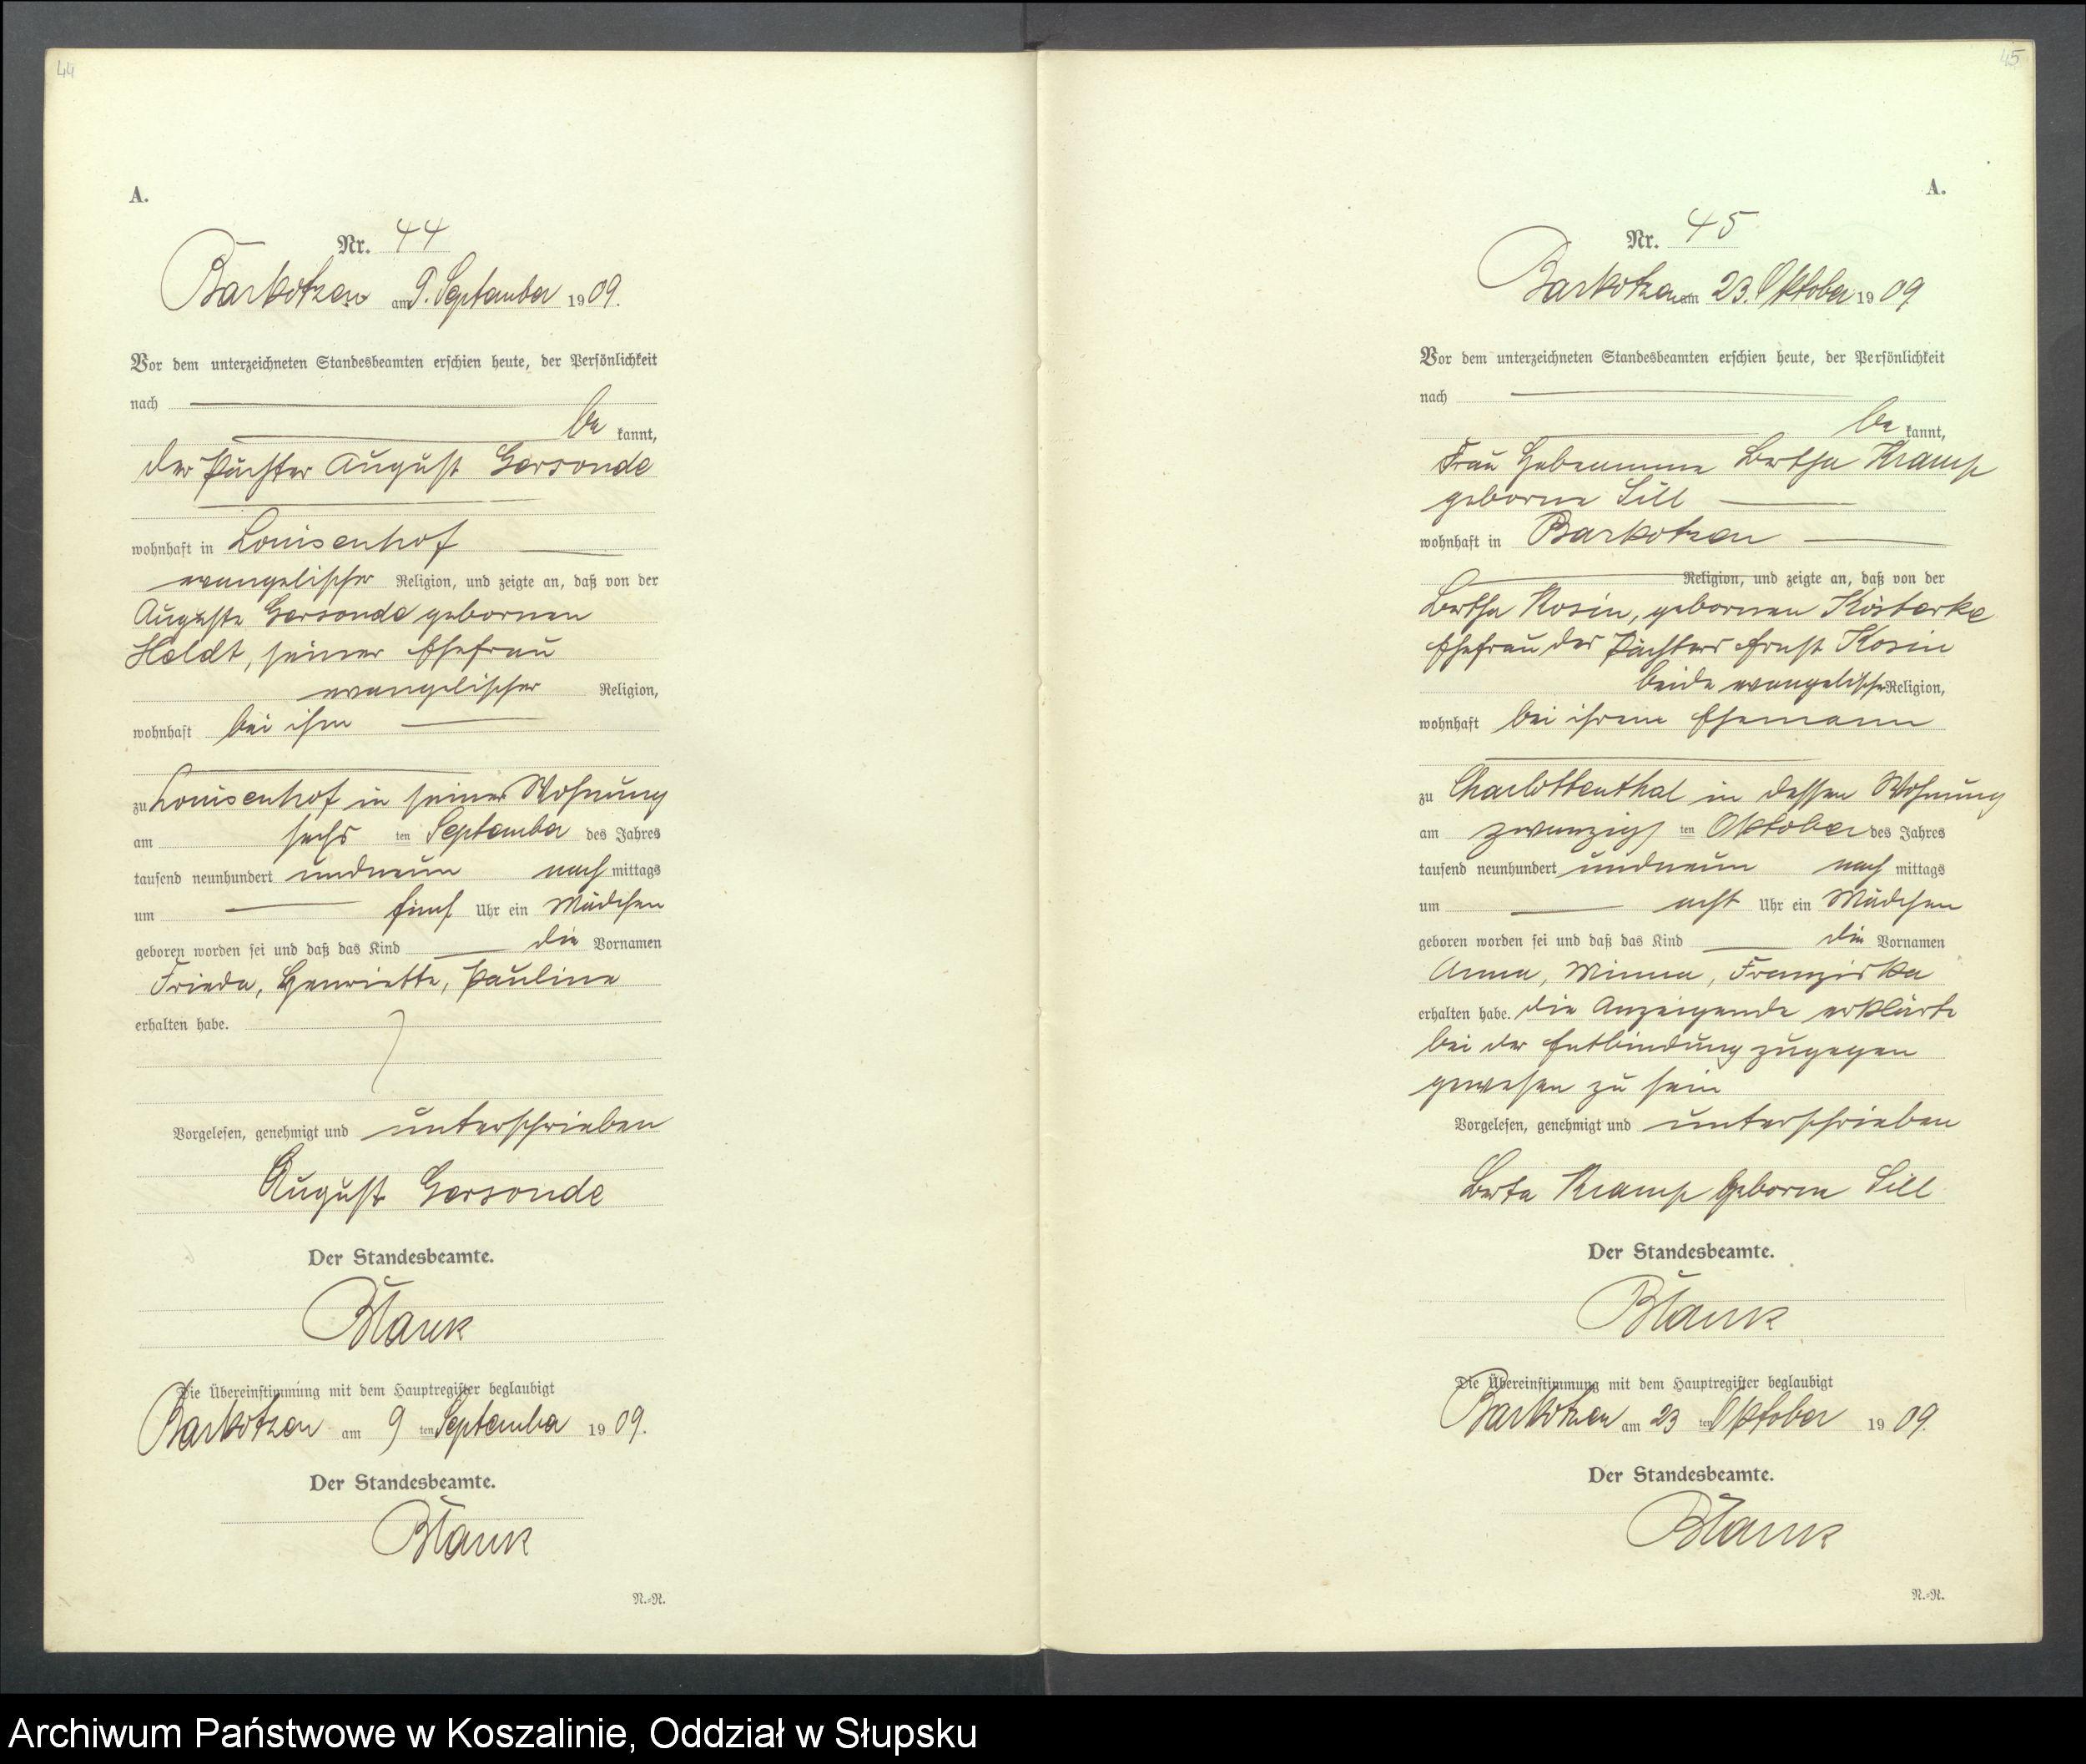 44
A.
Nr. 44
Barkotzen am 9. September 1909.
Vor dem unterzeichneten Standesbeamten erschien heute, der Persönlichkeit
nach
be kannt,
der Pächter August Gersonde
wohnhaft in Louisenhof
evangelischer Religion, und zeigte an, daß von der
Auguste Gersonde gebornen
Heldt, seiner Ehefrau
evangelischer Religion,
wohnhaft bei ihm
zu Louisenhof in seiner Wohnung
am sechs ten September des Jahres
tausend neunhundert undneun nach mittags
um fünf Uhr ein Mädchen
geboren worden sei und daß das Kind die Vornamen
Frieda, Henriette, Pauline
erhalten habe.
Vorgelesen, genehmigt und unterschrieben
August Gersonde
Der Standesbeamte.
Blank
Die Übereinstimmung mit dem Hauptregister beglaubigt
Barkotzen am 9 ten September 1909.
Der Standesbeamte.
Blank
N.=N.
45
A.
Nr. 45
Barkotzen am 23. Oktober 1909
Vor dem unterzeichneten Standesbeamten erschien heute, der Persönlichkeit
nach
be kannt,
Frau Hebeamme Bertha Kramp
geborne Sill
wohnhaft in Barkotzen
Religion, und zeigte an, daß von der
Bertha Kosin, gebornen Kösterke
Ehefrau des Pächters Ernst Kosin
beide evangelischer Religion,
wohnhaft bei ihrem Ehemann
zu Charlottenthal in dessen Wohnung
am zwanzigs ten Oktober des Jahres
tausend neunhundert undneun nach mittags
um acht Uhr ein Mädchen
geboren worden sei und daß das Kind die Vornamen
Anna, Minna, Franziska
erhalten habe. die Anzeigende erklärte
bei der Entbindung zugegen
gewesen zu sein
Vorgelesen, genehmigt und unterschrieben
Berta Kramp geborne Sill
Der Standesbeamte.
Blank
Die Übereinstimmung mit dem Hauptregister beglaubigt
Barkotzen am 23 ten Oktober 1909.
Der Standesbeamte.
Blank
N.=N.
Archiwum Państwowe w Koszalinie, Oddział w Słupsku